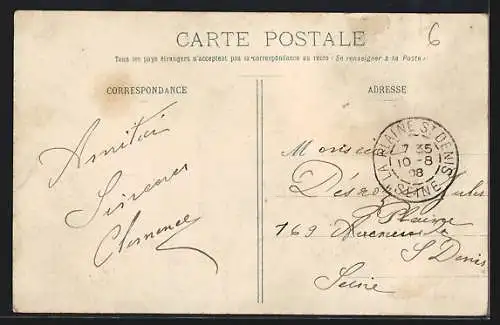 CARTE POSTALE
6
Tous les pays étrangers n'acceptent pas la correspondance au recto (Se renseigner à la Poste)
CORRESPONDANCE
ADRESSE
Amitiés
Sincères
Clemence
LA PLAINE ST DENIS
7 35
10-8
08
SEINE
Monsieur
Jules
Plaine
169
St Denis
Seine